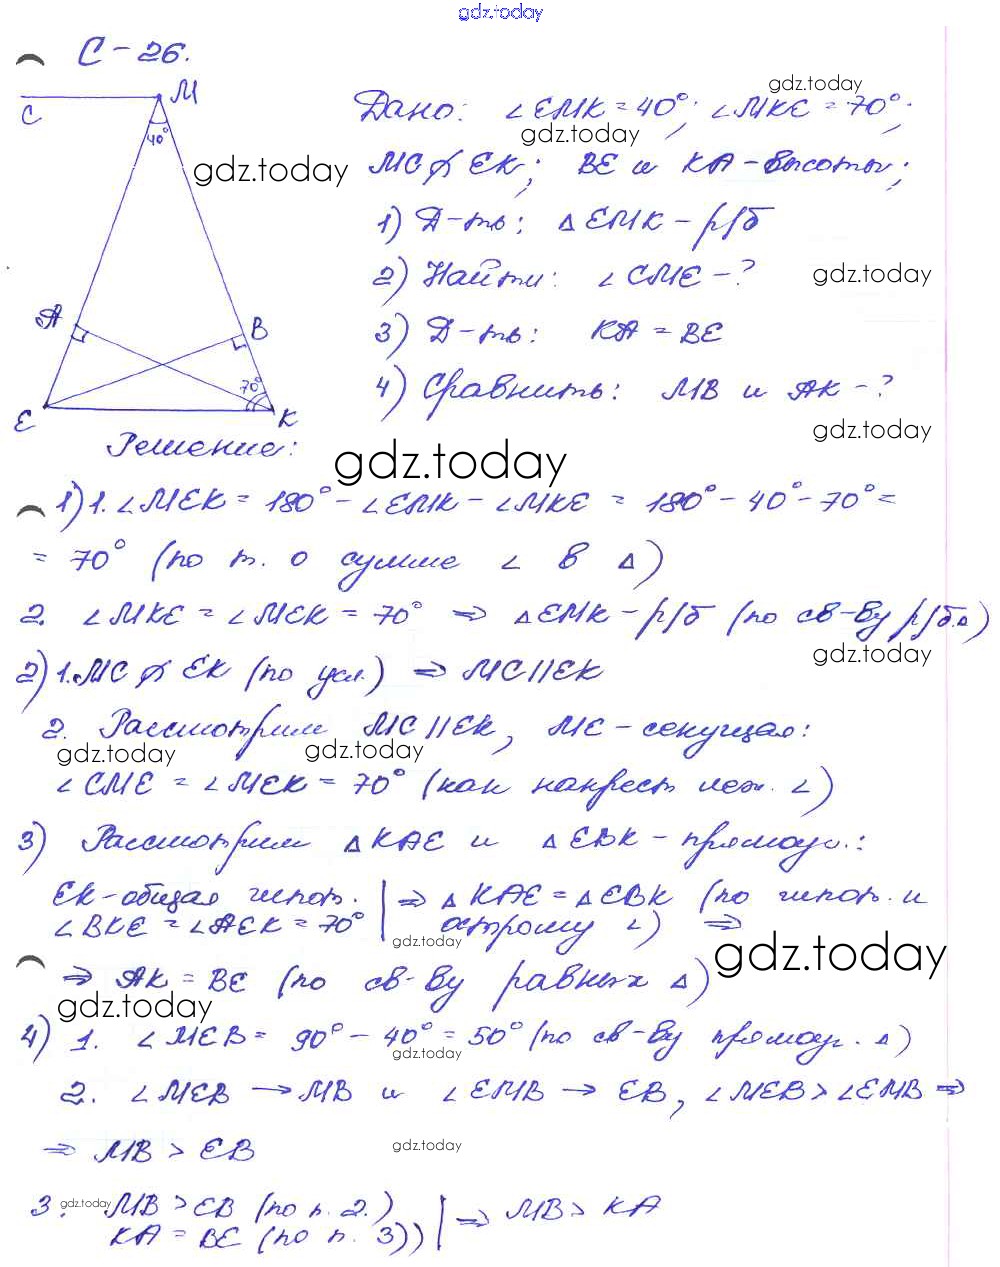 gdz.today
С-26.
M
C
40°
A
B
70°
E
K
gdz.today
Дано: ∠EMK = 40°; ∠MKE = 70°;
gdz.today
gdz.today
MC ∦ EK; BE и KA - высоты;
1) Д-ть: △EMK - р/б
2) Найти: ∠CME - ?
gdz.today
3) Д-ть: KA = BE
4) Сравнить: MB и AK - ?
gdz.today
Решение:
gdz.today
1) 1. ∠MEK = 180° - ∠EMK - ∠MKE = 180° - 40° - 70° =
= 70° (по т. о сумме ∠ в △)
2. ∠MKE = ∠MEK = 70° ⇒ △EMK - р/б (по св-ву р/б △)
gdz.today
2) 1. MC ∦ EK (по усл.) ⇒ MC || EK
2. Рассмотрим MC || EK, ME - секущая:
gdz.today gdz.today
∠CME = ∠MEK = 70° (как накрест леж. ∠)
3) Рассмотрим △KAE и △EBK - прямоуг.:
EK - общая гипот. | ⇒ △KAE = △EBK (по гипот. и
∠BKE = ∠AEK = 70° | острому ∠) ⇒
gdz.today
gdz.today
⇒ AK = BE (по св-ву равных △)
gdz.today
4) 1. ∠MEB = 90° - 40° = 50° (по св-ву прямоуг. △)
gdz.today
2. ∠MEB → MB и ∠EMB → EB, ∠MEB > ∠EMB ⇒
⇒ MB > EB
gdz.today
3. MB > EB (по п. 2.) | ⇒ MB > KA
gdz.today
KA = BE (по п. 3)) |